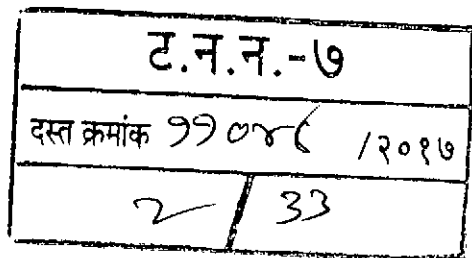 ट.न.न.-७
दस्त क्रमांक ११०४८ /२०१७
२ / ३३